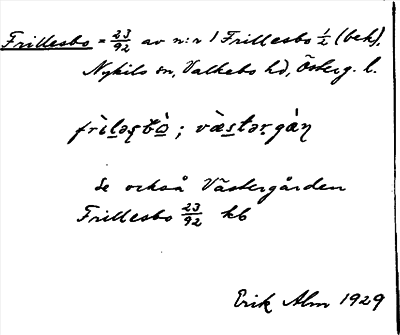 Frillesbo = 23/92 av n:r 1 Frillesbo 1/2 (beh),
Nykils sn, Valkebo hd, Österg. l.
frìləsbò ; væ̀stərgàn
Se också Västergården
Frillesbo 23/92 kb
Erik Alm 1929